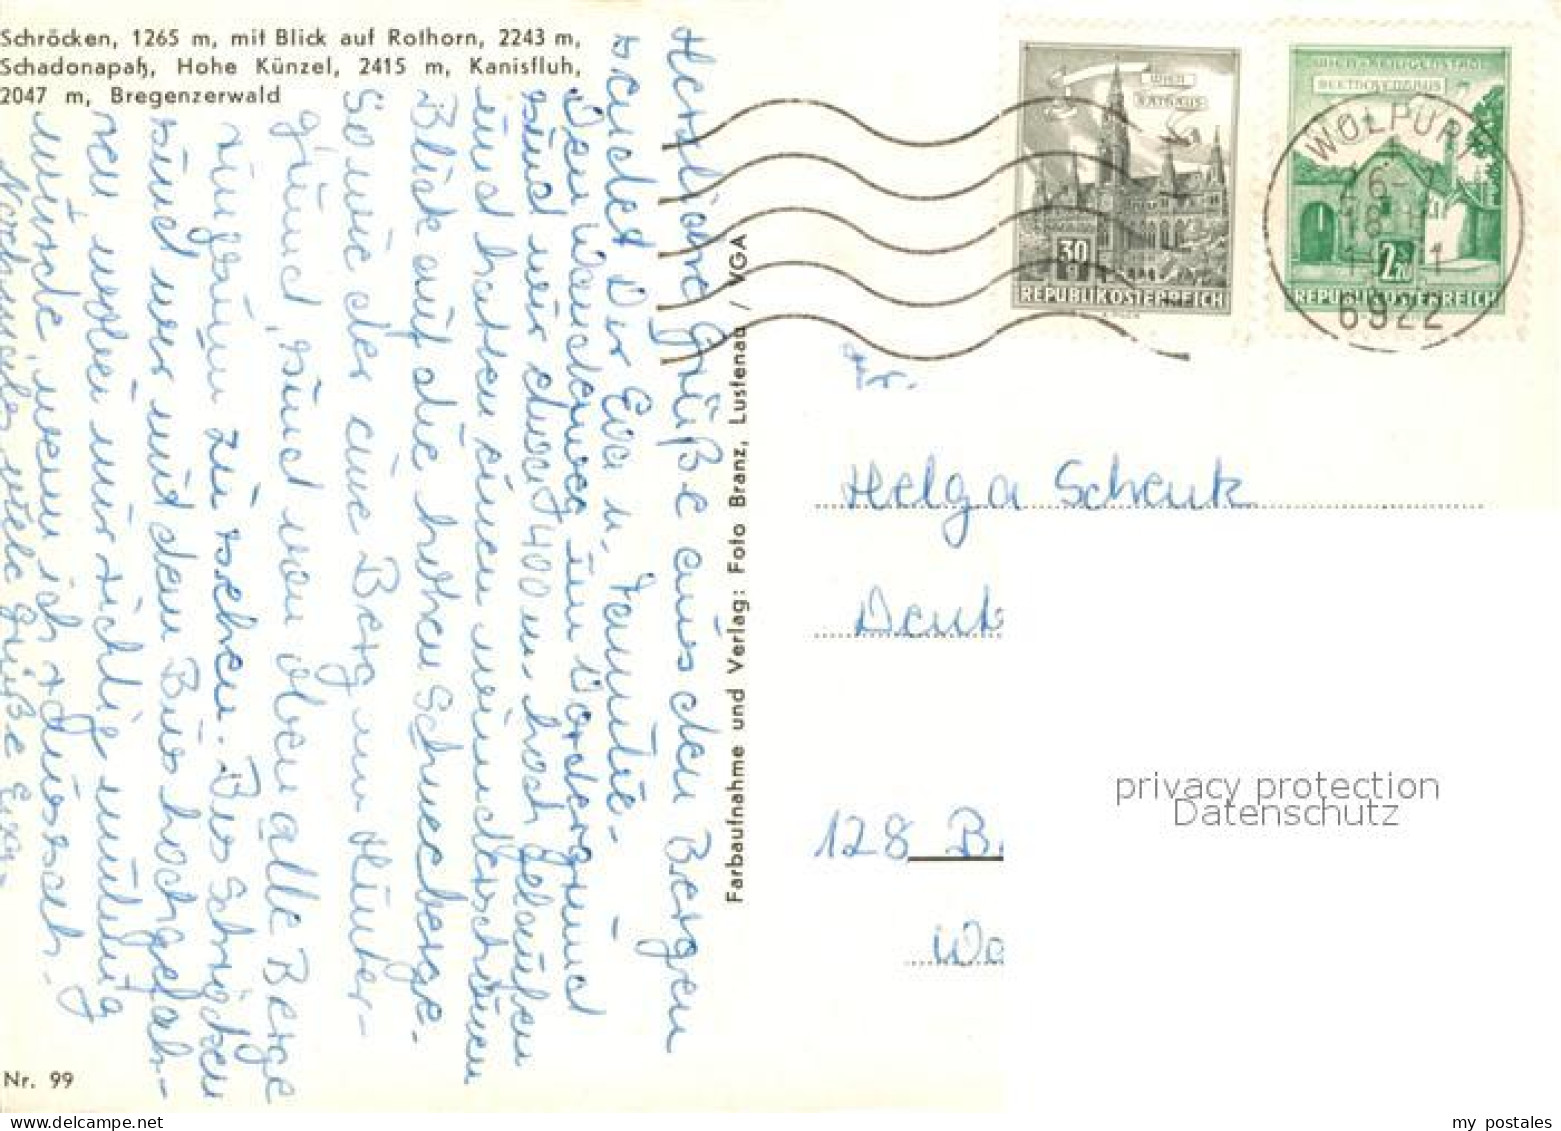 Schröcken, 1265 m, mit Blick auf Rothorn, 2243 m,
Schadonapaß, Hohe Künzel, 2415 m, Kanisfluh,
2047 m, Bregenzerwald
Herzliche Grüße aus den Bergen
sendet Dir Eva u. Familie. –
Den Wanderweg im Vordergrund
sind wir etwa 1400 m hoch gelaufen
und hatten einen wunderschönen
Blick auf die hohen Schneeberge.
So wie der eine Berg im Hinter-
grund, sind von oben alle Berge
ringsum zu sehen. Bis Schröcken
sind wir mit dem Bus hochgefah-
ren, wobei mir richtig mulmig
wurde, wenn ich raussah.
Nochmals viele Grüße Eva
Farbaufnahme und Verlag: Foto Branz, Lustenau / WGA
Nr. 99
WIEN
RATHAUS
30
REPUBLIK ÖSTERREICH
WIEN-HEILIGENSTADT
BEETHOVENHAUS
2.20
REPUBLIK ÖSTERREICH
WOLFURT
6922
Helga Schenk
128 B
privacy protection
Datenschutz
my postales